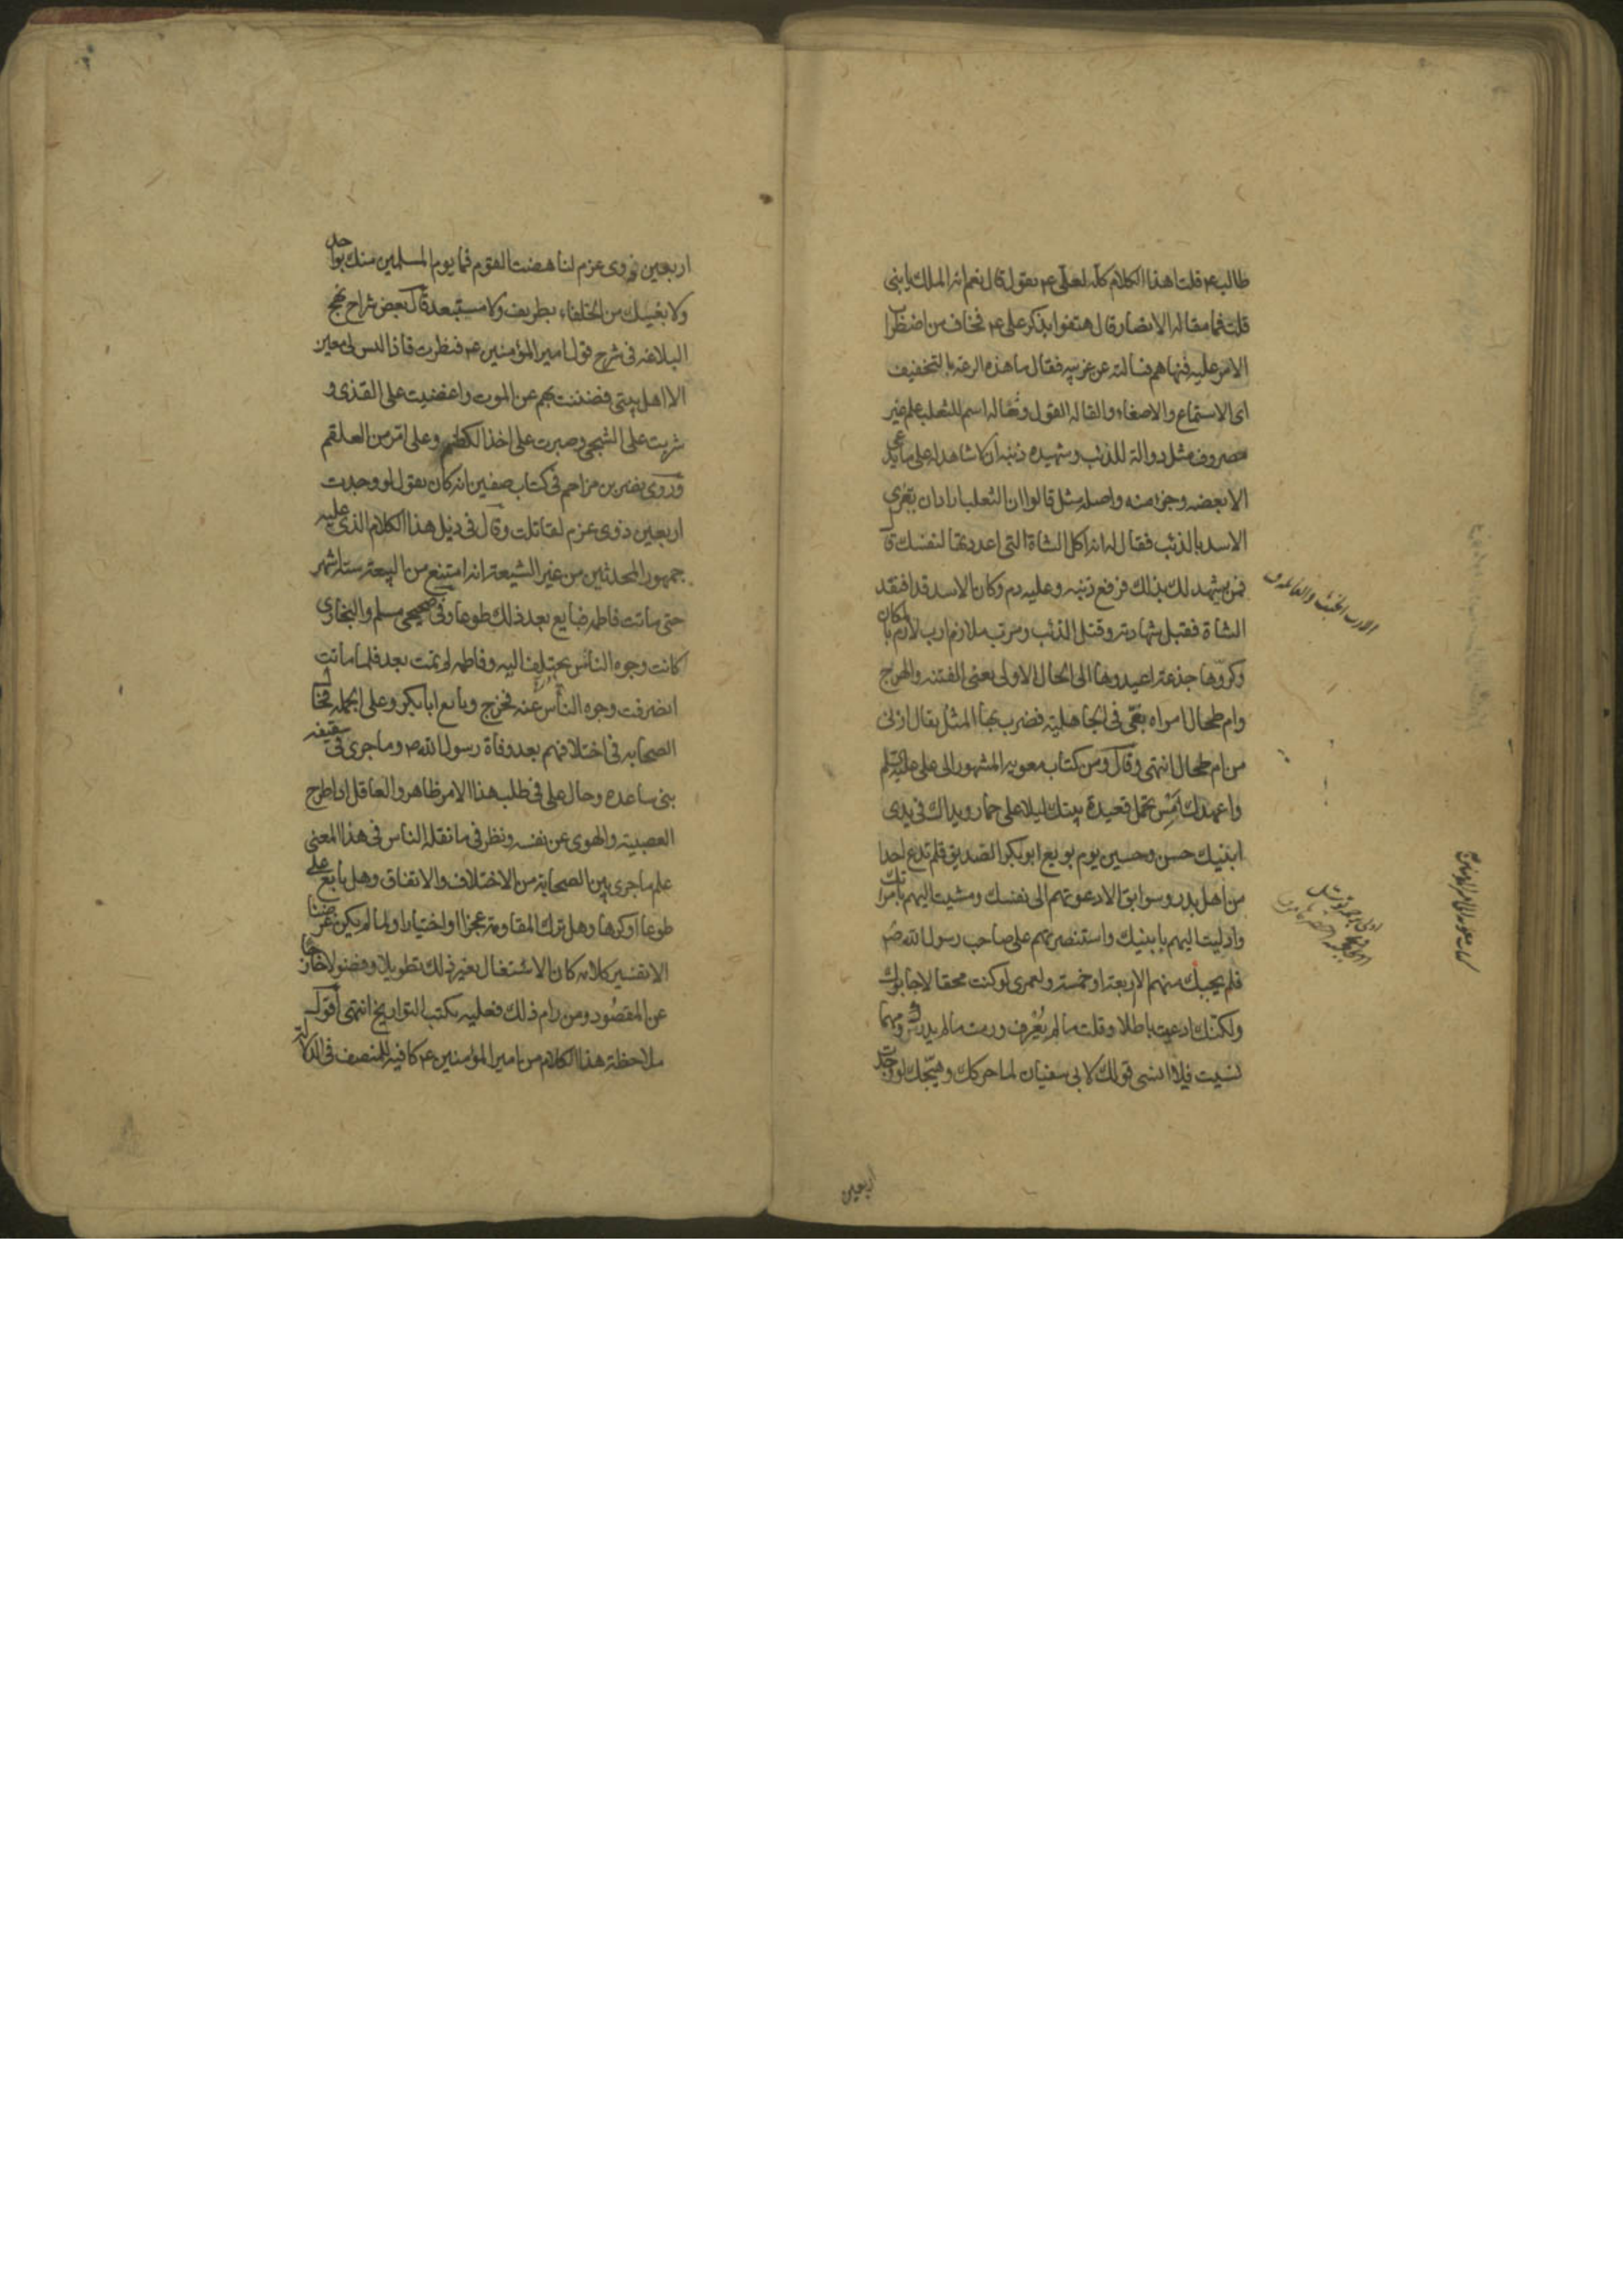 طالب ع قلت اهذا الكلام كله لعلى ع يقول قال نعم انه الملك يا بنى
قلت فما مقاله الانصار قال هتفوا بذكر على ع فخاف من اضطراب
الامر عليه فنهاهم فسالته عن غريبه فقال ما هذه الرعة بالتخفيف
اى الاستماع والاصغاء والقاله القول وثعاله اسم للثعلب علم غير
مصروف مثل ذوالة للذئب وشهيده ذنبه اى لا شاهد له على ما يدعى
الا بعضه وجزء منه واصله مثل قالوا ان الثعلب اراد ان يغرى
الاسد بالذئب فقال له انه اكل الشاة التى اعددتها لنفسك قال
فمن يشهد لك بذلك فرفع ذنبه وعليه دم وكان الاسد قد افتقد
الشاة فقبل شهادته وقتل الذئب ومرب ملازم ارب لازم بالمكان
وكروها جذعة اعيدوها الى الحال الاولى يعنى الفتنه والهرج
وام طحال امراه بغى فى الجاهلية فضرب بها المثل يقال ازنى
من ام طحال انتهى وقال ومن كتاب معويه المشهور الى على عليه السلم
واعهدك امس تحمل قعيدة بيتك ليلا على حمار ويداك فى يدى
ابنيك حسن وحسين يوم بويع ابو بكر الصديق فلم تدع احدا
من اهل بدر وسوابق الا دعوتهم الى نفسك ومشيت اليهم بامراتك
وادليت اليهم بابنيك واستنصرتهم على صاحب رسول الله ص
فلم يجبك منهم الا ربعة او خمسة ولعمرى لو كنت محقا لاجابوك
ولكنك ادعيت باطلا وقلت ما لم يعرف ورمت ما لم يدرك ومهما
نسيت فلا انسى قولك لابى سفيان لما حركك وهيجك لو وجدت
اربعين
اربعين ذوى عزم لناهضت القوم فما يوم المسلمين منك بواحد
ولا بغيك من الخلفاء بطريف ولا مستبعد قال بعض شراح نهج
البلاغه فى شرح قول امير المؤمنين ع فنظرت فاذا ليس لى معين
الا اهل بيتى فضننت بهم عن الموت واغضيت على القذى و
شربت على الشجى وصبرت على اخذ الكظم وعلى امر من العلقم
وروى نصر بن مزاحم فى كتاب صفين انه كان يقول لو وجدت
اربعين ذوى عزم لقاتلت وقال فى ذيل هذا الكلام الذى عليه
جمهور المحدثين من غير الشيعة انه امتنع من البيعة ستة اشهر
حتى ماتت فاطمه فبايع بعد ذلك طوعا وفى صحيحى مسلم والبخارى
كانت وجوه الناس يختلف اليه وفاطمه لم تمت بعد فلما ماتت
انصرفت وجوه الناس عنه فخرج وبايع ابا بكر وعلى الجمله فحال
الصحابه فى اختلافهم بعد وفاة رسول الله ص وما جرى فى سقيفه
بنى ساعده وحال على فى طلب هذا الامر ظاهر والعاقل اذا طرح
العصبية والهوى عن نفسه ونظر فى ما نقله الناس فى هذا المعنى
علم ما جرى بين الصحابة من الاختلاف والاتفاق وهل بايع على
طوعا او كرها وهل ترك المقاومة عجزا او اختيارا ولما لم يكن غرضنا
الا تفسير كلامه كان الاشتغال بغير ذلك تطويلا وفضولا خارجا
عن المقصود ومن رام ذلك فعليه بكتب التواريخ انتهى اقول
ملاحظة هذا الكلام من امير المؤمنين ع كافية للمنصف فى الدلالة